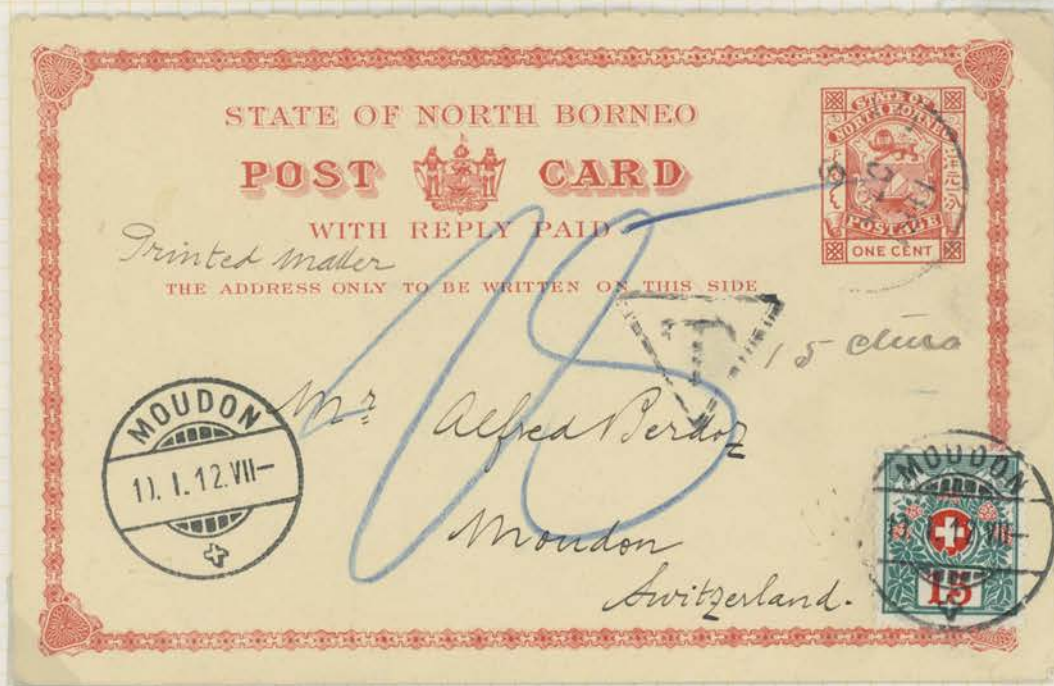 STATE OF NORTH BORNEO
POST CARD
WITH REPLY PAID
Printed matter
THE ADDRESS ONLY TO BE WRITTEN ON THIS SIDE
STATE OF
NORTH BORNEO
POSTAGE
ONE CENT
15
T
15
Mr Alfred Berdoz
Moudon
Switzerland.
MOUDON
I.12.VII-
MOUDON
15